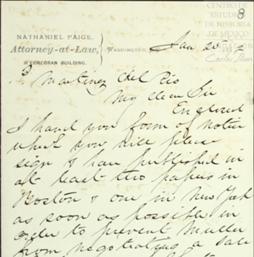 8
CENTRO DE
ESTUDIOS
DE HISTORIA
DE MEXICO
Carlos Slim
NATHANIEL PAIGE,
Attorney-at-Law,
CORCORAN BUILDING.
WASHINGTON,
Jan 20
P. Martinez del Rio
My dear Sir
Enclosed
I hand you form of notice
which you will please
sign & have published in
at least two papers in
Boston & one in New York
as soon as possible in
order to prevent Muller
from negotiating a sale